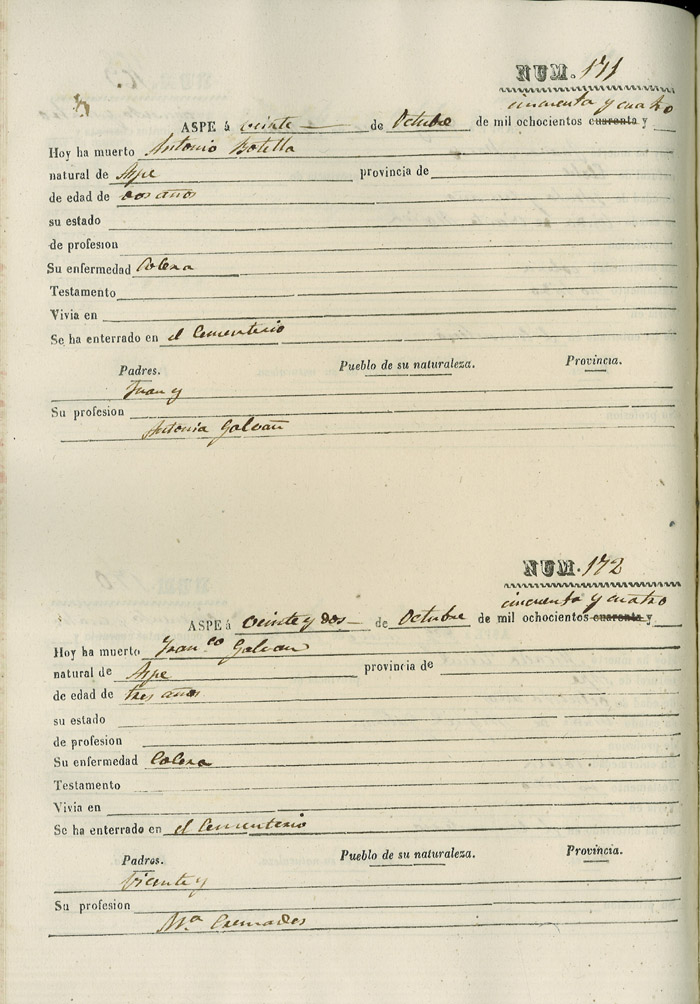 NUM. 171
cincuenta y cuatro
ASPE á veinte de Octubre de mil ochocientos cuarenta y
Hoy ha muerto Antonio Botella
natural de Aspe provincia de
de edad de dos años
su estado
de profesion
Su enfermedad Colera
Testamento
Vivia en
Se ha enterrado en el Cementerio
Padres. Pueblo de su naturaleza. Provincia.
Juan y
Su profesion
Antonia Galvañ
NUM. 172
cincuenta y cuatro
ASPE á veinte y dos de Octubre de mil ochocientos cuarenta y
Hoy ha muerto Fran.co Galvan
natural de Aspe provincia de
de edad de tres años
su estado
de profesion
Su enfermedad Colera
Testamento
Vivia en
Se ha enterrado en el Cementerio
Padres. Pueblo de su naturaleza. Provincia.
Vicente y
Su profesion
Mª Cremades